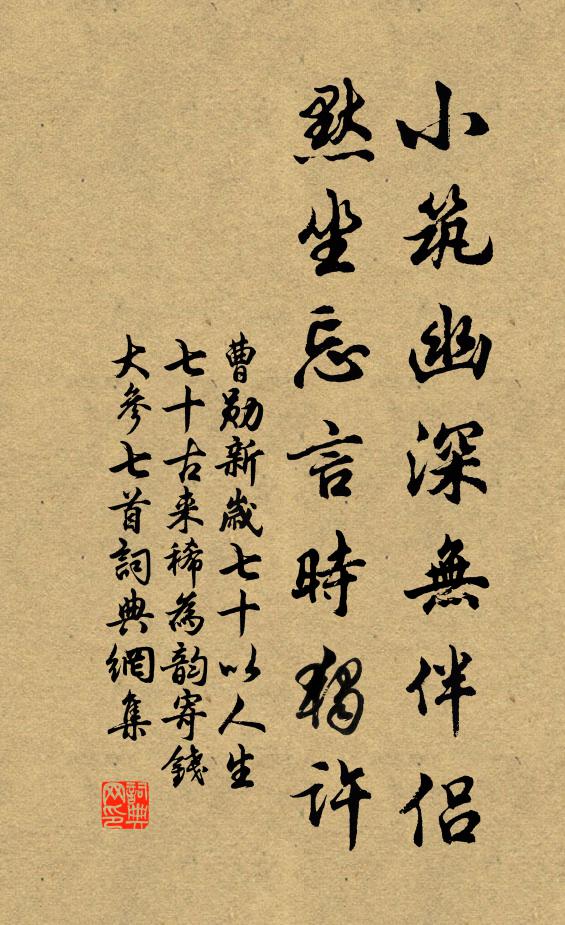 小筑幽深無伴侣
默坐忘言時獨許
曹勛新歲七十以人生
七十古来稀為韵寄錢
大參七首詞典網集
詞典网印